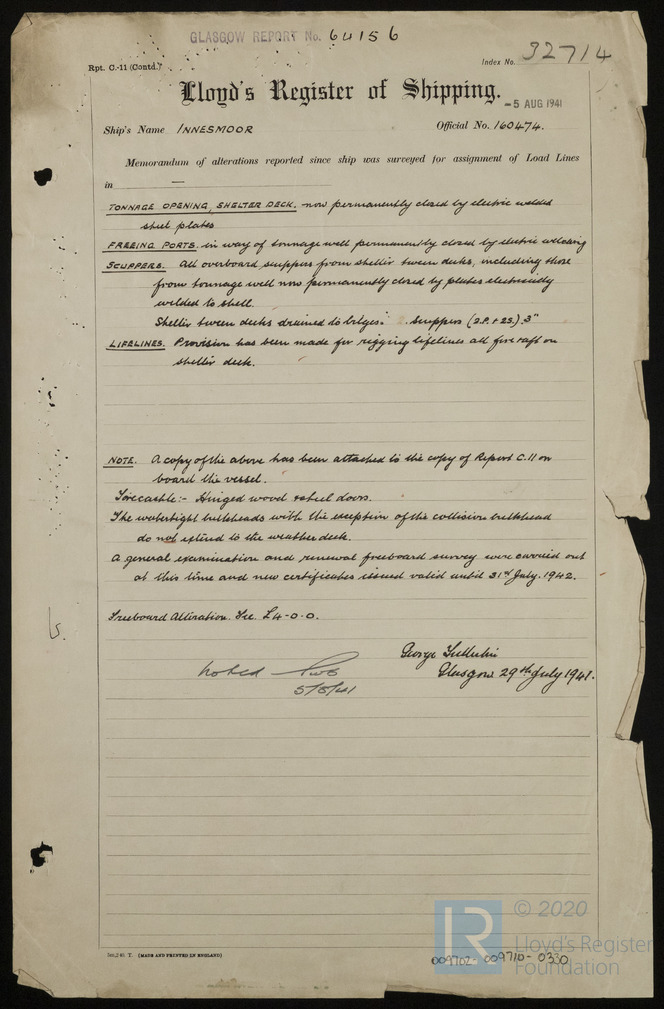 GLASGOW REPORT No. 64156
Rpt. C.-11 (Contd.)
Index No. 32714
Lloyd's Register of Shipping.
-5 AUG 1941
Ship's Name INNESMOOR
Official No. 160474.
Memorandum of alterations reported since ship was surveyed for assignment of Load Lines
in —
TONNAGE OPENING, SHELTER DECK. now permanently closed by electric welded
steel plates
FREEING PORTS. in way of tonnage well permanently closed by electric welding
SCUPPERS. All overboard scuppers from shelter tween decks, including those
from tonnage well now permanently closed by plates electrically
welded to shell.
Shelter tween decks drained to bilges: scuppers (2.P. + 2S.) 3"
LIFELINES. Provision has been made for rigging lifelines all fore & aft on
shelter deck.
NOTE. A copy of the above has been attached to the copy of Report C.11 on
board the vessel.
Forecastle:- Hinged wood & steel doors.
The watertight bulkheads with the exception of the collision bulkhead
do not extend to the weather deck.
A general examination and renewal freeboard survey were carried out
at this time and new certificates issued valid until 31st July. 1942.
Freeboard Alteration. Fee. £4-0-0.
George
Glasgow 29th July 1941.
noted
5/8/41
(MADE AND PRINTED IN ENGLAND)
LR
© 2020
Lloyd's Register
Foundation
009702-009710-0330